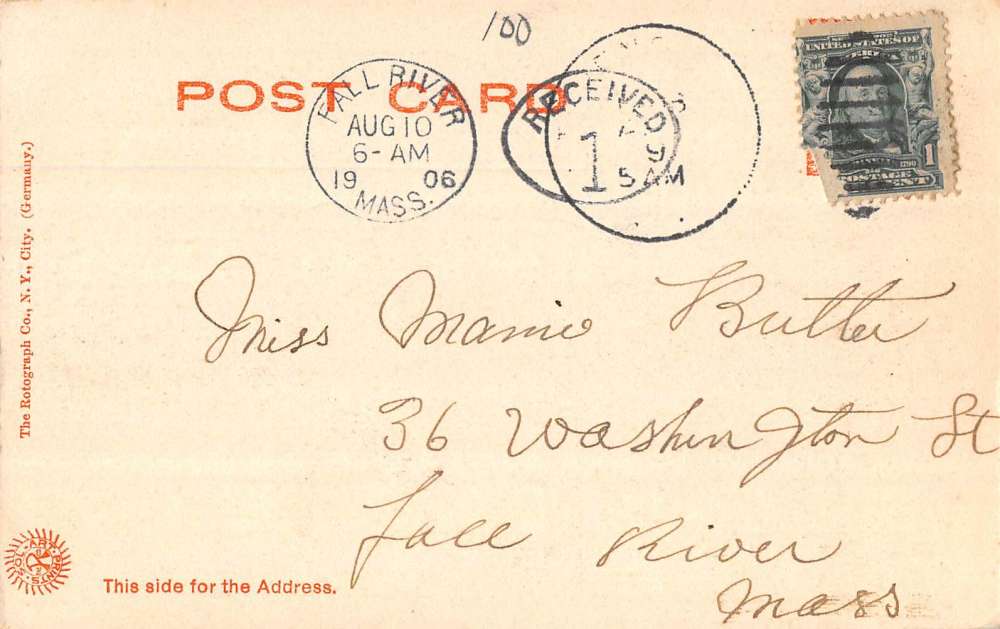 100
POST CARD
FALL RIVER
AUG 10
6-AM
19 06
MASS.
RECEIVED
1
9
5 AM
UNITED STATES OF
POSTAGE
1
Miss Mamie Butler
36 Washington St
Fall River
Mass
The Rotograph Co., N. Y., City. (Germany.)
SOL ART PRINTS
This side for the Address.